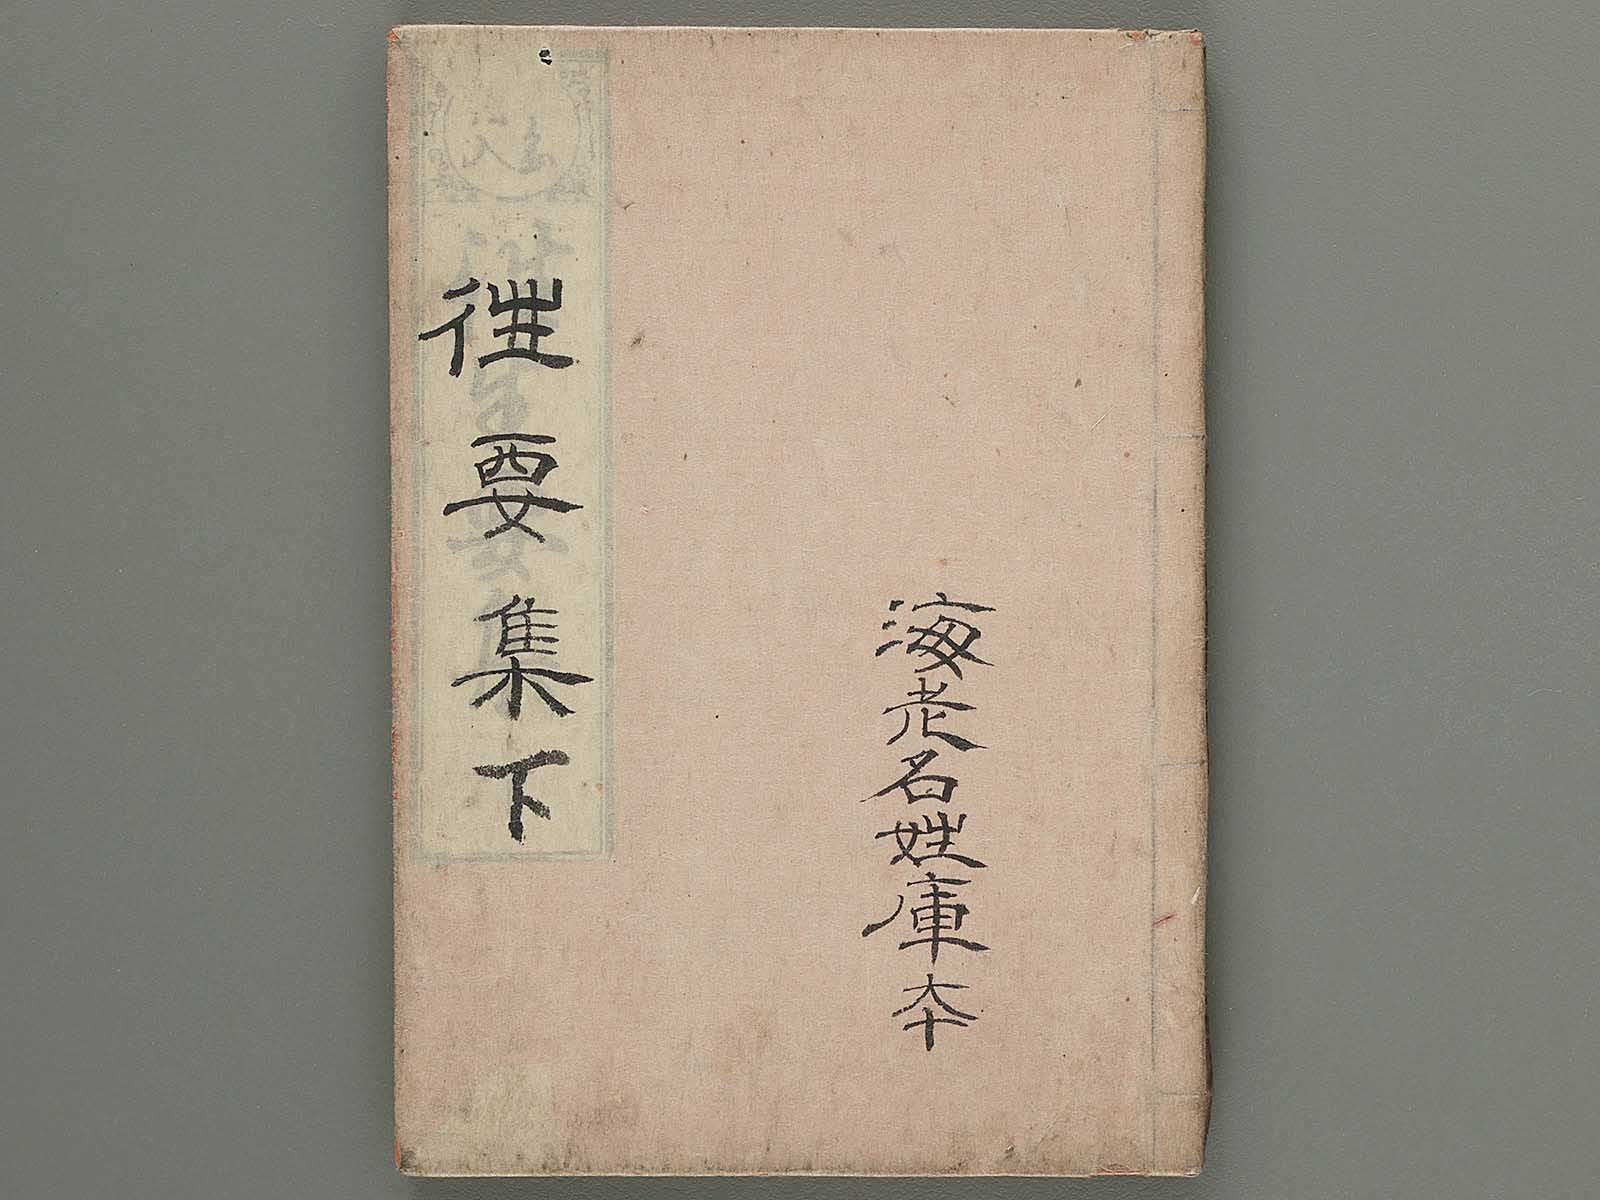 海老名姓庫夲
徃要集下